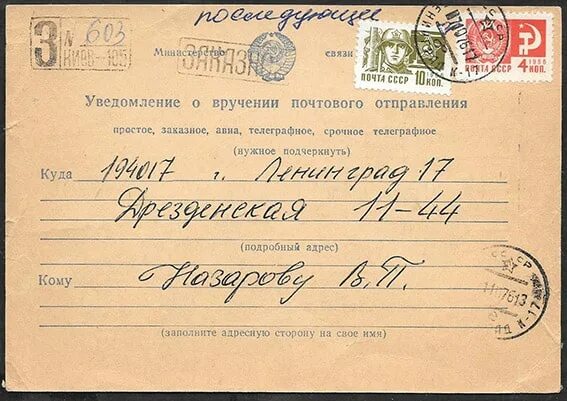 последующее
З № 603
КИЕВ-105
Министерство связи
ЗАКАЗН
ПОЧТА СССР 10 КОП.
ПОЧТА СССР 1966 4 КОП.
К-17
Уведомление о вручении почтового отправления
простое, заказное, авиа, телеграфное, срочное телеграфное
(нужное подчеркнуть)
Куда 194017 г. Ленинград 17
Дрезденская 11-44
(подробный адрес)
СССР
Кому Назарову В.П.
К-17
(заполните адресную сторону на свое имя)